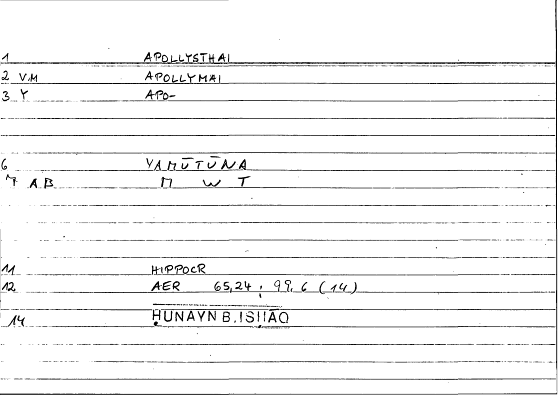 1 APOLLYSTHAI
2 V.M APOLLYMAI
3 Y APO-
6 YAMŪTŪNA
7 A.B. M W T
11 HIPPOCR
12 AER 65,24 ; 99,6 (14)
14 ḤUNAYN B. ISḤĀQ